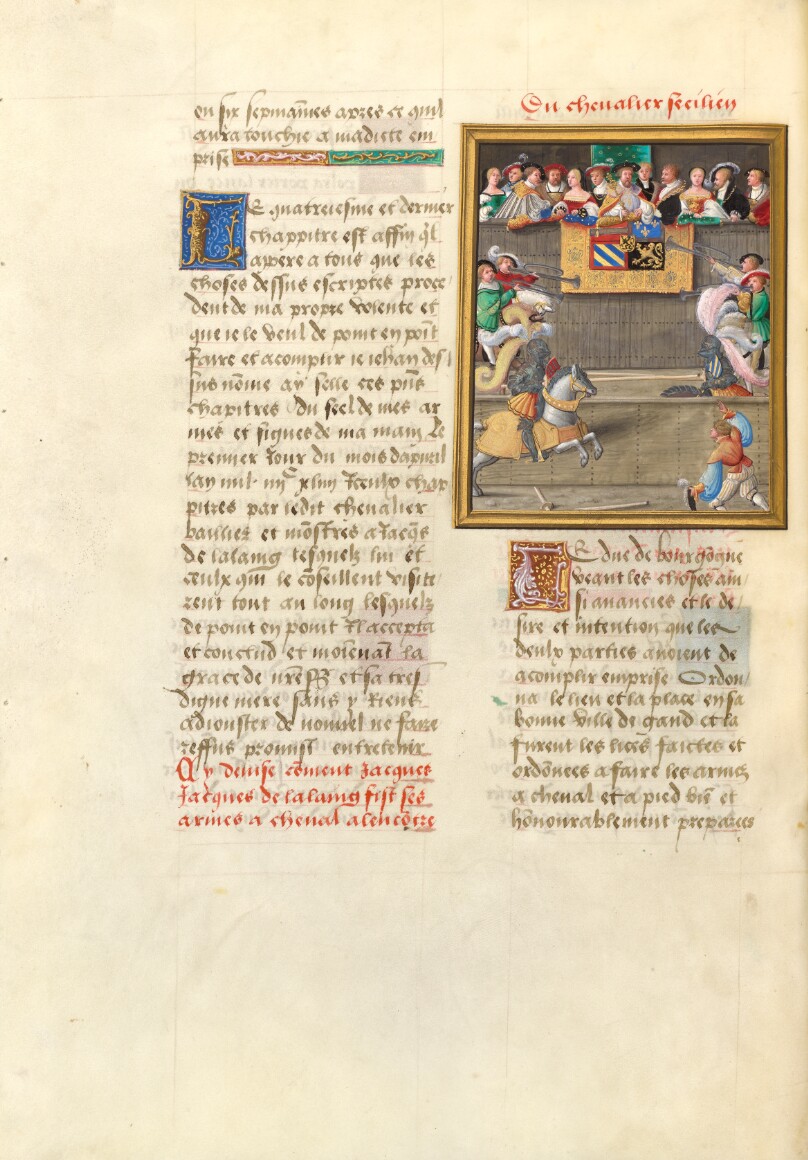 en six sepmaines apres ce quil
aura touchie a madicte em
prise
Le quatreiesme et dernier
chappitre est affin q̄l
apere a tous que les
choses dessus escriptes proce
dent de ma propre volente et
que ie le veul de point en poīt
faire et acomplir ie iehan des
sus nōme ay selle ces pn̄s
chapitres Du seel de mes ar
mes et signes de ma main Le
premier Jour du mois dapuril
lan mil iiijᶜ xlv
pitres par ledit chevalier
bailliez et mōstres a Jacq̄s
de lalaing lesquelz lui et
ceulx qui le cōseillent visite
rent tout au long lesquelz
de point en point Il accepta
et conclud et moienāt la
grace de nr̄e sr̄ et sa tres
digne mere sans y Riens
adiouster de nouuel ne faire
reffus promist entretenir
Cy deuise cōment Jacques
Jacques de lalaing fist ses
armes a cheual alencōtre
Du cheualier secilien
Le duc de bourgōgne
veant les choses ain
si auancies et le de
sire et intention que les
deulx parties auoient de
acomplir emprise Ordon
na le lieu et la place en sa
bonne ville de gand et la
furent les lices faictes et
ordōnees a faire les armes
a cheual et a pied biē et
hōnourablement preparees